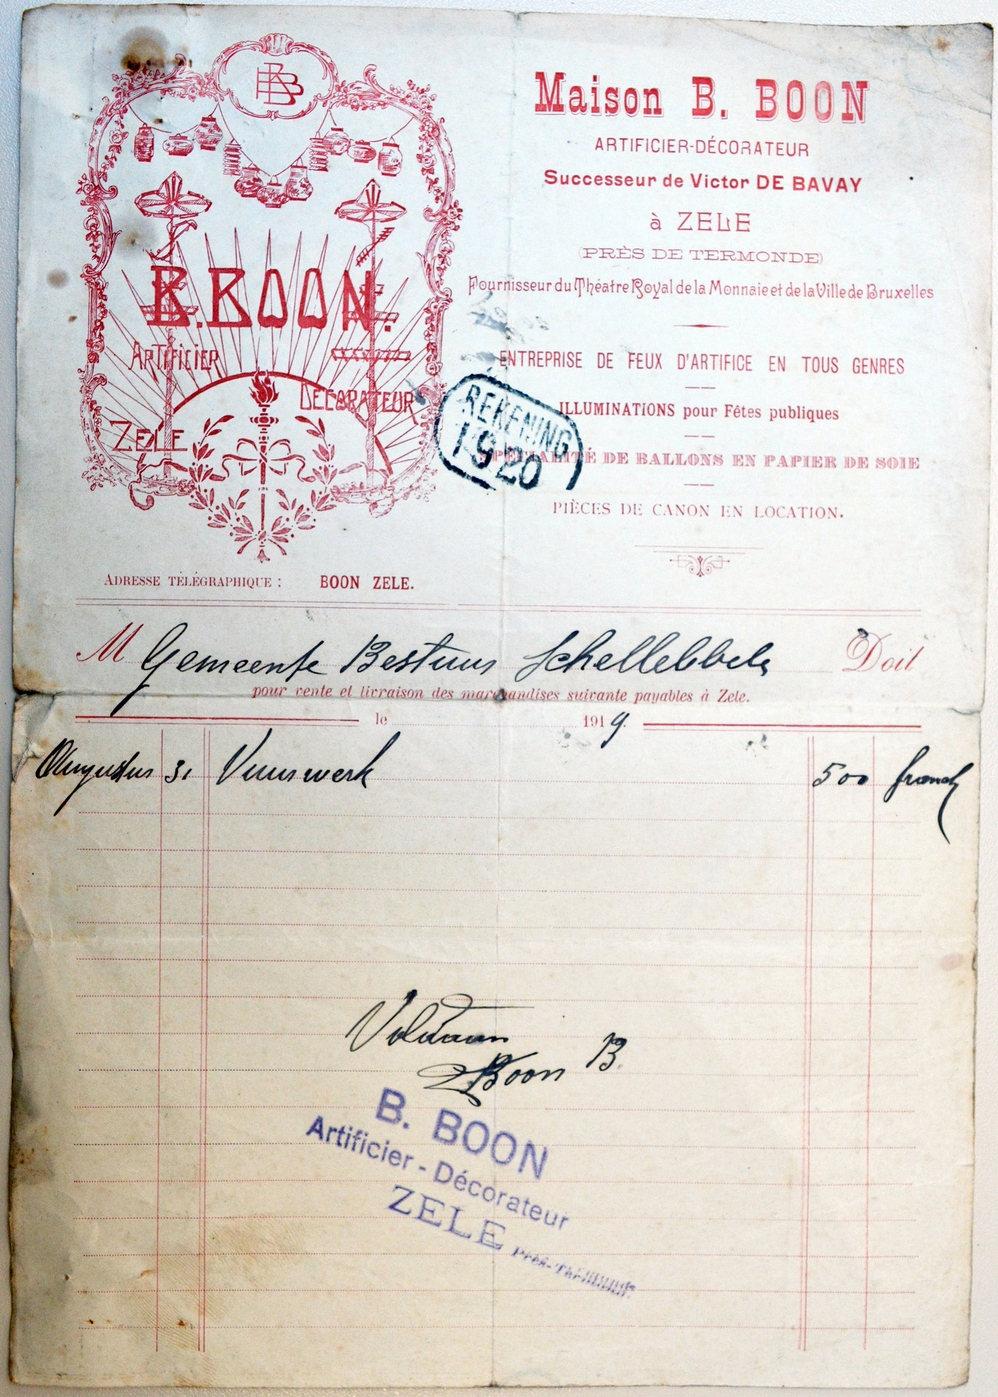 BB
B. BOON.
ARTIFICIER
DÉCORATEUR
ZELE
ADRESSE TÉLÉGRAPHIQUE : BOON ZELE.
Maison B. BOON
ARTIFICIER-DÉCORATEUR
Successeur de Victor DE BAVAY
à ZELE
(PRÈS DE TERMONDE)
Fournisseur du Théatre Royal de la Monnaie et de la Ville de Bruxelles
ENTREPRISE DE FEUX D'ARTIFICE EN TOUS GENRES
ILLUMINATIONS pour Fêtes publiques
SPÉCIALITÉ DE BALLONS EN PAPIER DE SOIE
PIÈCES DE CANON EN LOCATION.
REKENING
1920
M Gemeente Bestuur Schellebbele Doit
pour vente et livraison des marchandises suivante payables à Zele.
le 1919.
Augustus 31 Vuurwerk 500 franck
Voldaan
Boon B.
B. BOON
Artificier - Décorateur
ZELE Près-Termonde